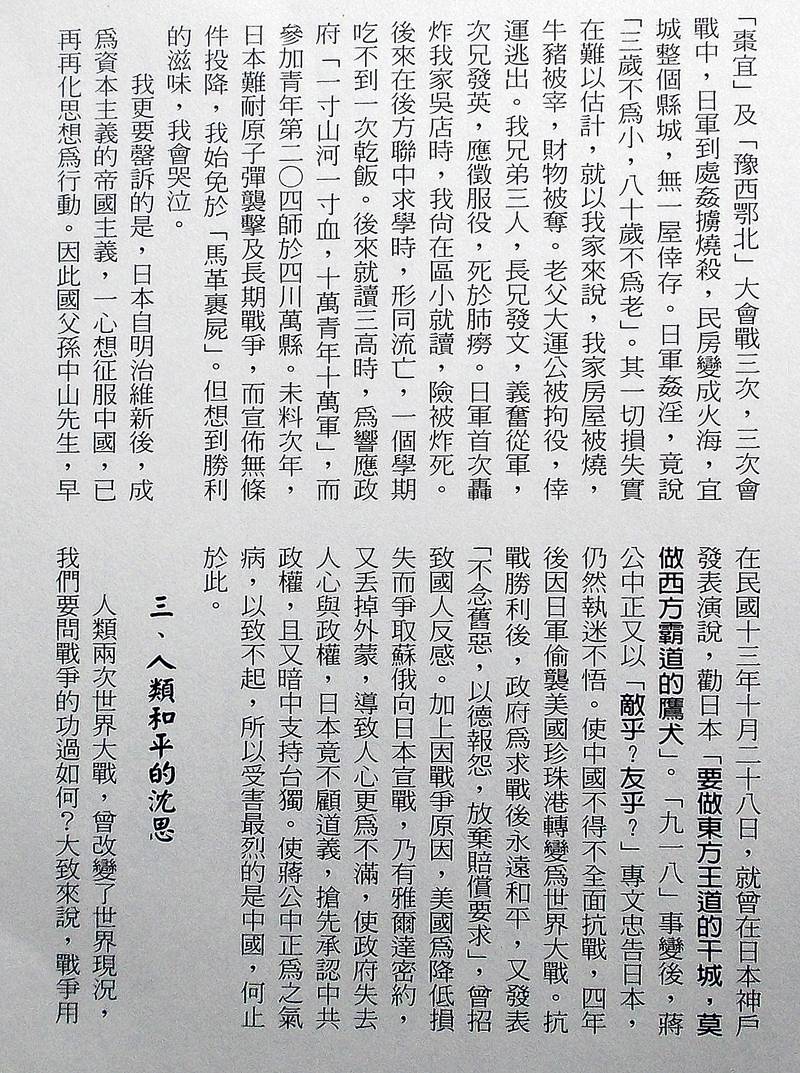 「棗宜」及「豫西鄂北」大會戰三次，三次會
戰中，日軍到處姦擄燒殺，民房變成火海，宜
城整個縣城，無一屋倖存。日軍姦淫，竟說
「三歲不爲小，八十歲不爲老」。其一切損失實
在難以估計，就以我家來說，我家房屋被燒，
牛豬被宰，財物被奪。老父大運公被拘役，倖
運逃出。我兄弟三人，長兄發文，義奮從軍，
次兄發英，應徵服役，死於肺癆。日軍首次轟
炸我家吳店時，我尙在區小就讀，險被炸死。
後來在後方聯中求學時，形同流亡，一個學期
吃不到一次乾飯。後來就讀三高時，爲響應政
府「一寸山河一寸血，十萬青年十萬軍」，而
參加青年第二〇四師於四川萬縣。未料次年，
日本難耐原子彈襲擊及長期戰爭，而宣佈無條
件投降，我始免於「馬革裹屍」。但想到勝利
的滋味，我會哭泣。
我更要罄訴的是，日本自明治維新後，成
爲資本主義的帝國主義，一心想征服中國，已
再再化思想爲行動。因此國父孫中山先生，早
在民國十三年十月二十八日，就曾在日本神戶
發表演說，勸日本「要做東方王道的干城，莫
做西方霸道的鷹犬」。「九一八」事變後，蔣
公中正又以「敵乎？友乎？」專文忠告日本，
仍然執迷不悟。使中國不得不全面抗戰，四年
後因日軍偷襲美國珍珠港轉變爲世界大戰。抗
戰勝利後，政府爲求戰後永遠和平，又發表
「不念舊惡，以德報怨，放棄賠償要求」，曾招
致國人反感。加上因戰爭原因，美國爲降低損
失而爭取蘇俄向日本宣戰，乃有雅爾達密約，
又丟掉外蒙，導致人心更爲不滿，使政府失去
人心與政權，日本竟不顧道義，搶先承認中共
政權，且又暗中支持台獨。使蔣公中正爲之氣
病，以致不起，所以受害最烈的是中國，何止
於此。
三、人類和平的沈思
人類兩次世界大戰，曾改變了世界現況，
我們要問戰爭的功過如何？大致來說，戰爭用